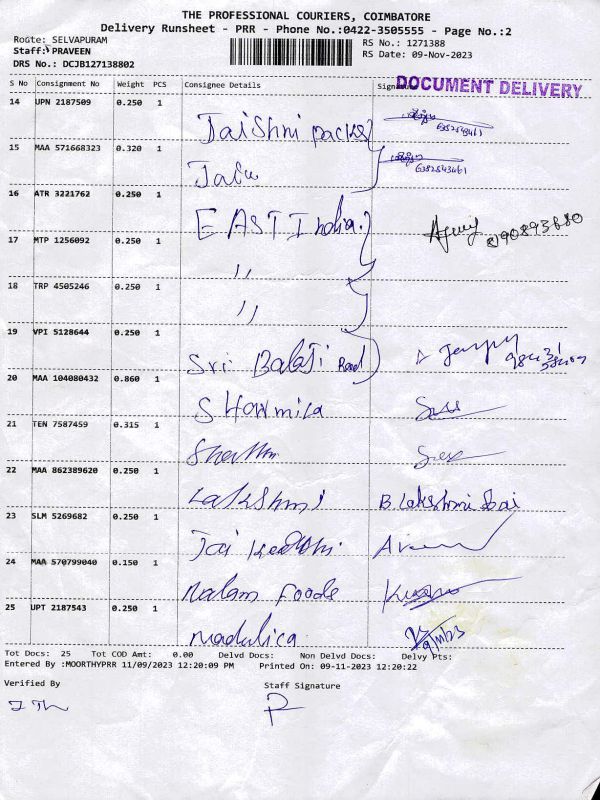 THE PROFESSIONAL COURIERS, COIMBATORE
Delivery Runsheet - PRR - Phone No.:0422-3505555 - Page No.:2
Route: SELVAPURAM RS No.: 1271388
Staff: PRAVEEN RS Date: 09-Nov-2023
DRS No.: DCJB127138802
DOCUMENT DELIVERY
S No Consignment No Weight PCS Consignee Details
14 UPN 2187509 0.250 1
Jaishni packs 6382543461
15 MAA 571668323 0.320 1
6382543461
16 ATR 3221762 0.250 1
EAST India
17 MTP 1256092 0.250 1
"
18 TRP 4505246 0.250 1
"
19 VPI 5128644 0.250 1
Sri Balaji Road
20 MAA 104080432 0.860 1
Showmica
21 TEN 7587459 0.315 1
22 MAA 862389620 0.250 1
Lakshmi B. Lakshmi Bai
23 SLM 5269682 0.250 1
Jai
24 MAA 570799040 0.150 1
Nalam Foods
25 UPT 2187543 0.250 1
Madulica 9/11/23
Tot Docs: 25 Tot COD Amt: 0.00 Delvd Docs: Non Delvd Docs: Delvy Pts:
Entered By :MOORTHYPRR 11/09/2023 12:20:09 PM Printed On: 09-11-2023 12:20:22
Verified By Staff Signature